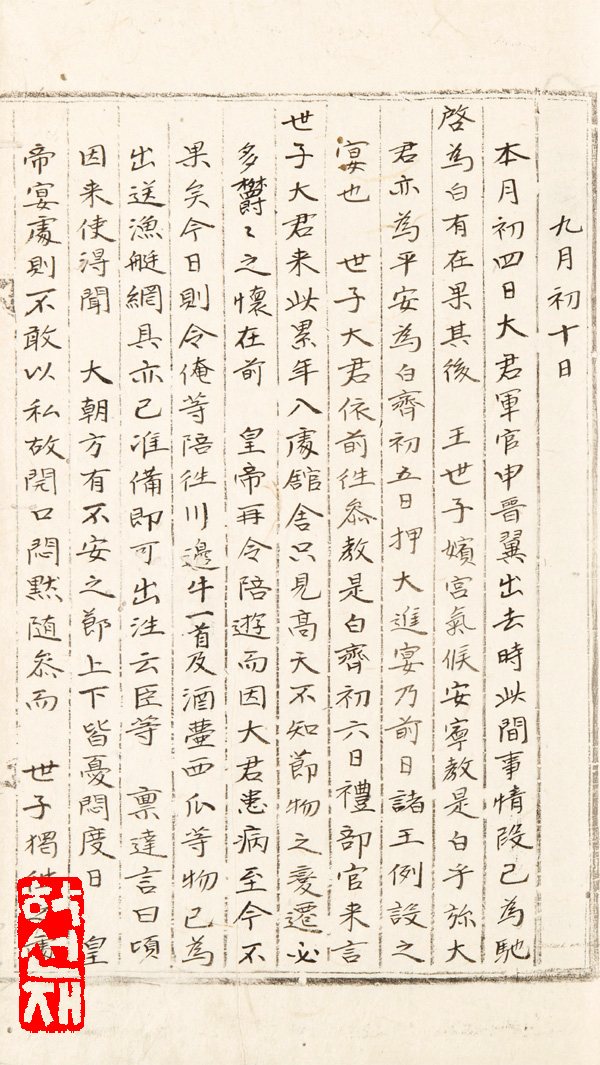 九月初十日
本月初四日大君軍官申晋翼出去時此間事情段已為馳
啓為白有在果其後 王世子嬪宮氣候安寧教是白乎旀大
君亦為平安為白齊初五日押大進宴乃前日諸王例設之
宴也 世子大君依前徃叅教是白齊初六日禮部官来言
世子大君来此累年入處舘舍只見高天不知莭物之変遷必
多欝〻之懷在前 皇帝再令陪遊而因大君患病至今不
果矣今日則令俺等陪徃川邊牛一首及酒壺西瓜等物已為
出送漁艇網具亦已准備即可出徃云臣等 禀達言曰頃
因来使淂聞 大朝方有不安之莭上下皆憂悶度日 皇
帝宴處則不敢以私故開口悶默随叅而 世子獨徃 處
학선재